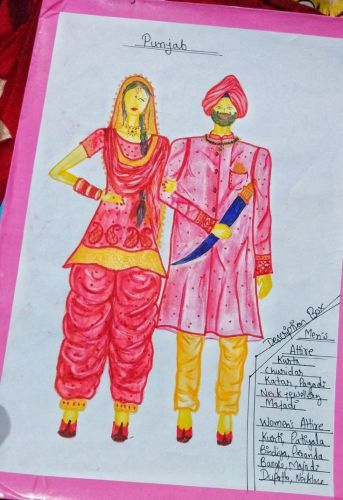 Punjab
Description Box
Men's
Attire
Kurta
Churidar
Katar, Pagadi
Neck jewellery
Mojadi
Women's Attire
Kurti, Patiyala
Bindiya, Paranda
Bangle, Mojadi
Dupatta, Necklace